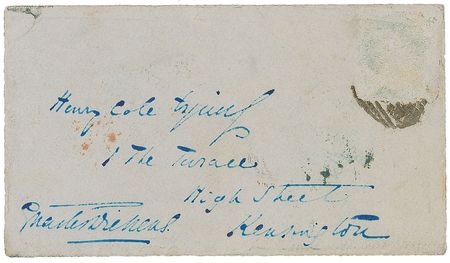 Henry Cole Esquire
1 The Terrace
High Street
Kensington
Charles Dickens.